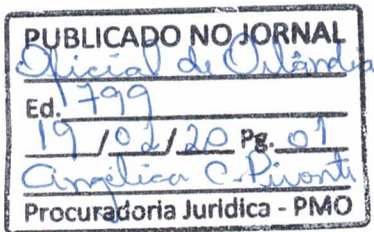 PUBLICADO NO JORNAL
Oficial de Orlândia
Ed. 1799
19/02/20 Pg. 01
Angélica C.
Procuradoria Juridica - PMO